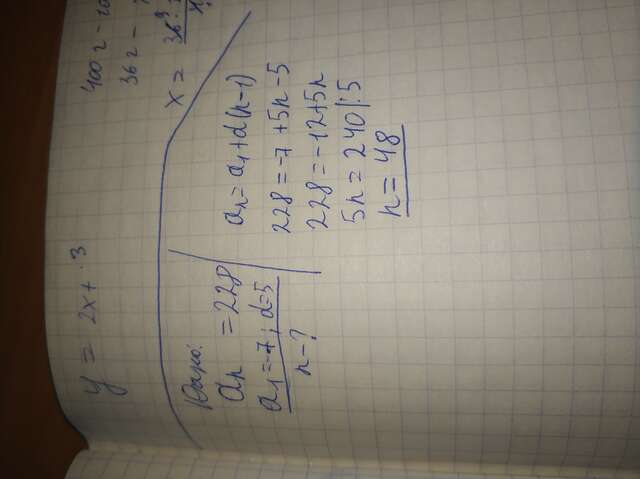 400 г -
36 г -
x =
y = 2x + 3
Дано:
aₙ = 228
a₁ = -7; d = 5
n - ?
aₙ = a₁ + d(n-1)
228 = -7 + 5n - 5
228 = -12 + 5n
5n = 240 |:5
n = 48